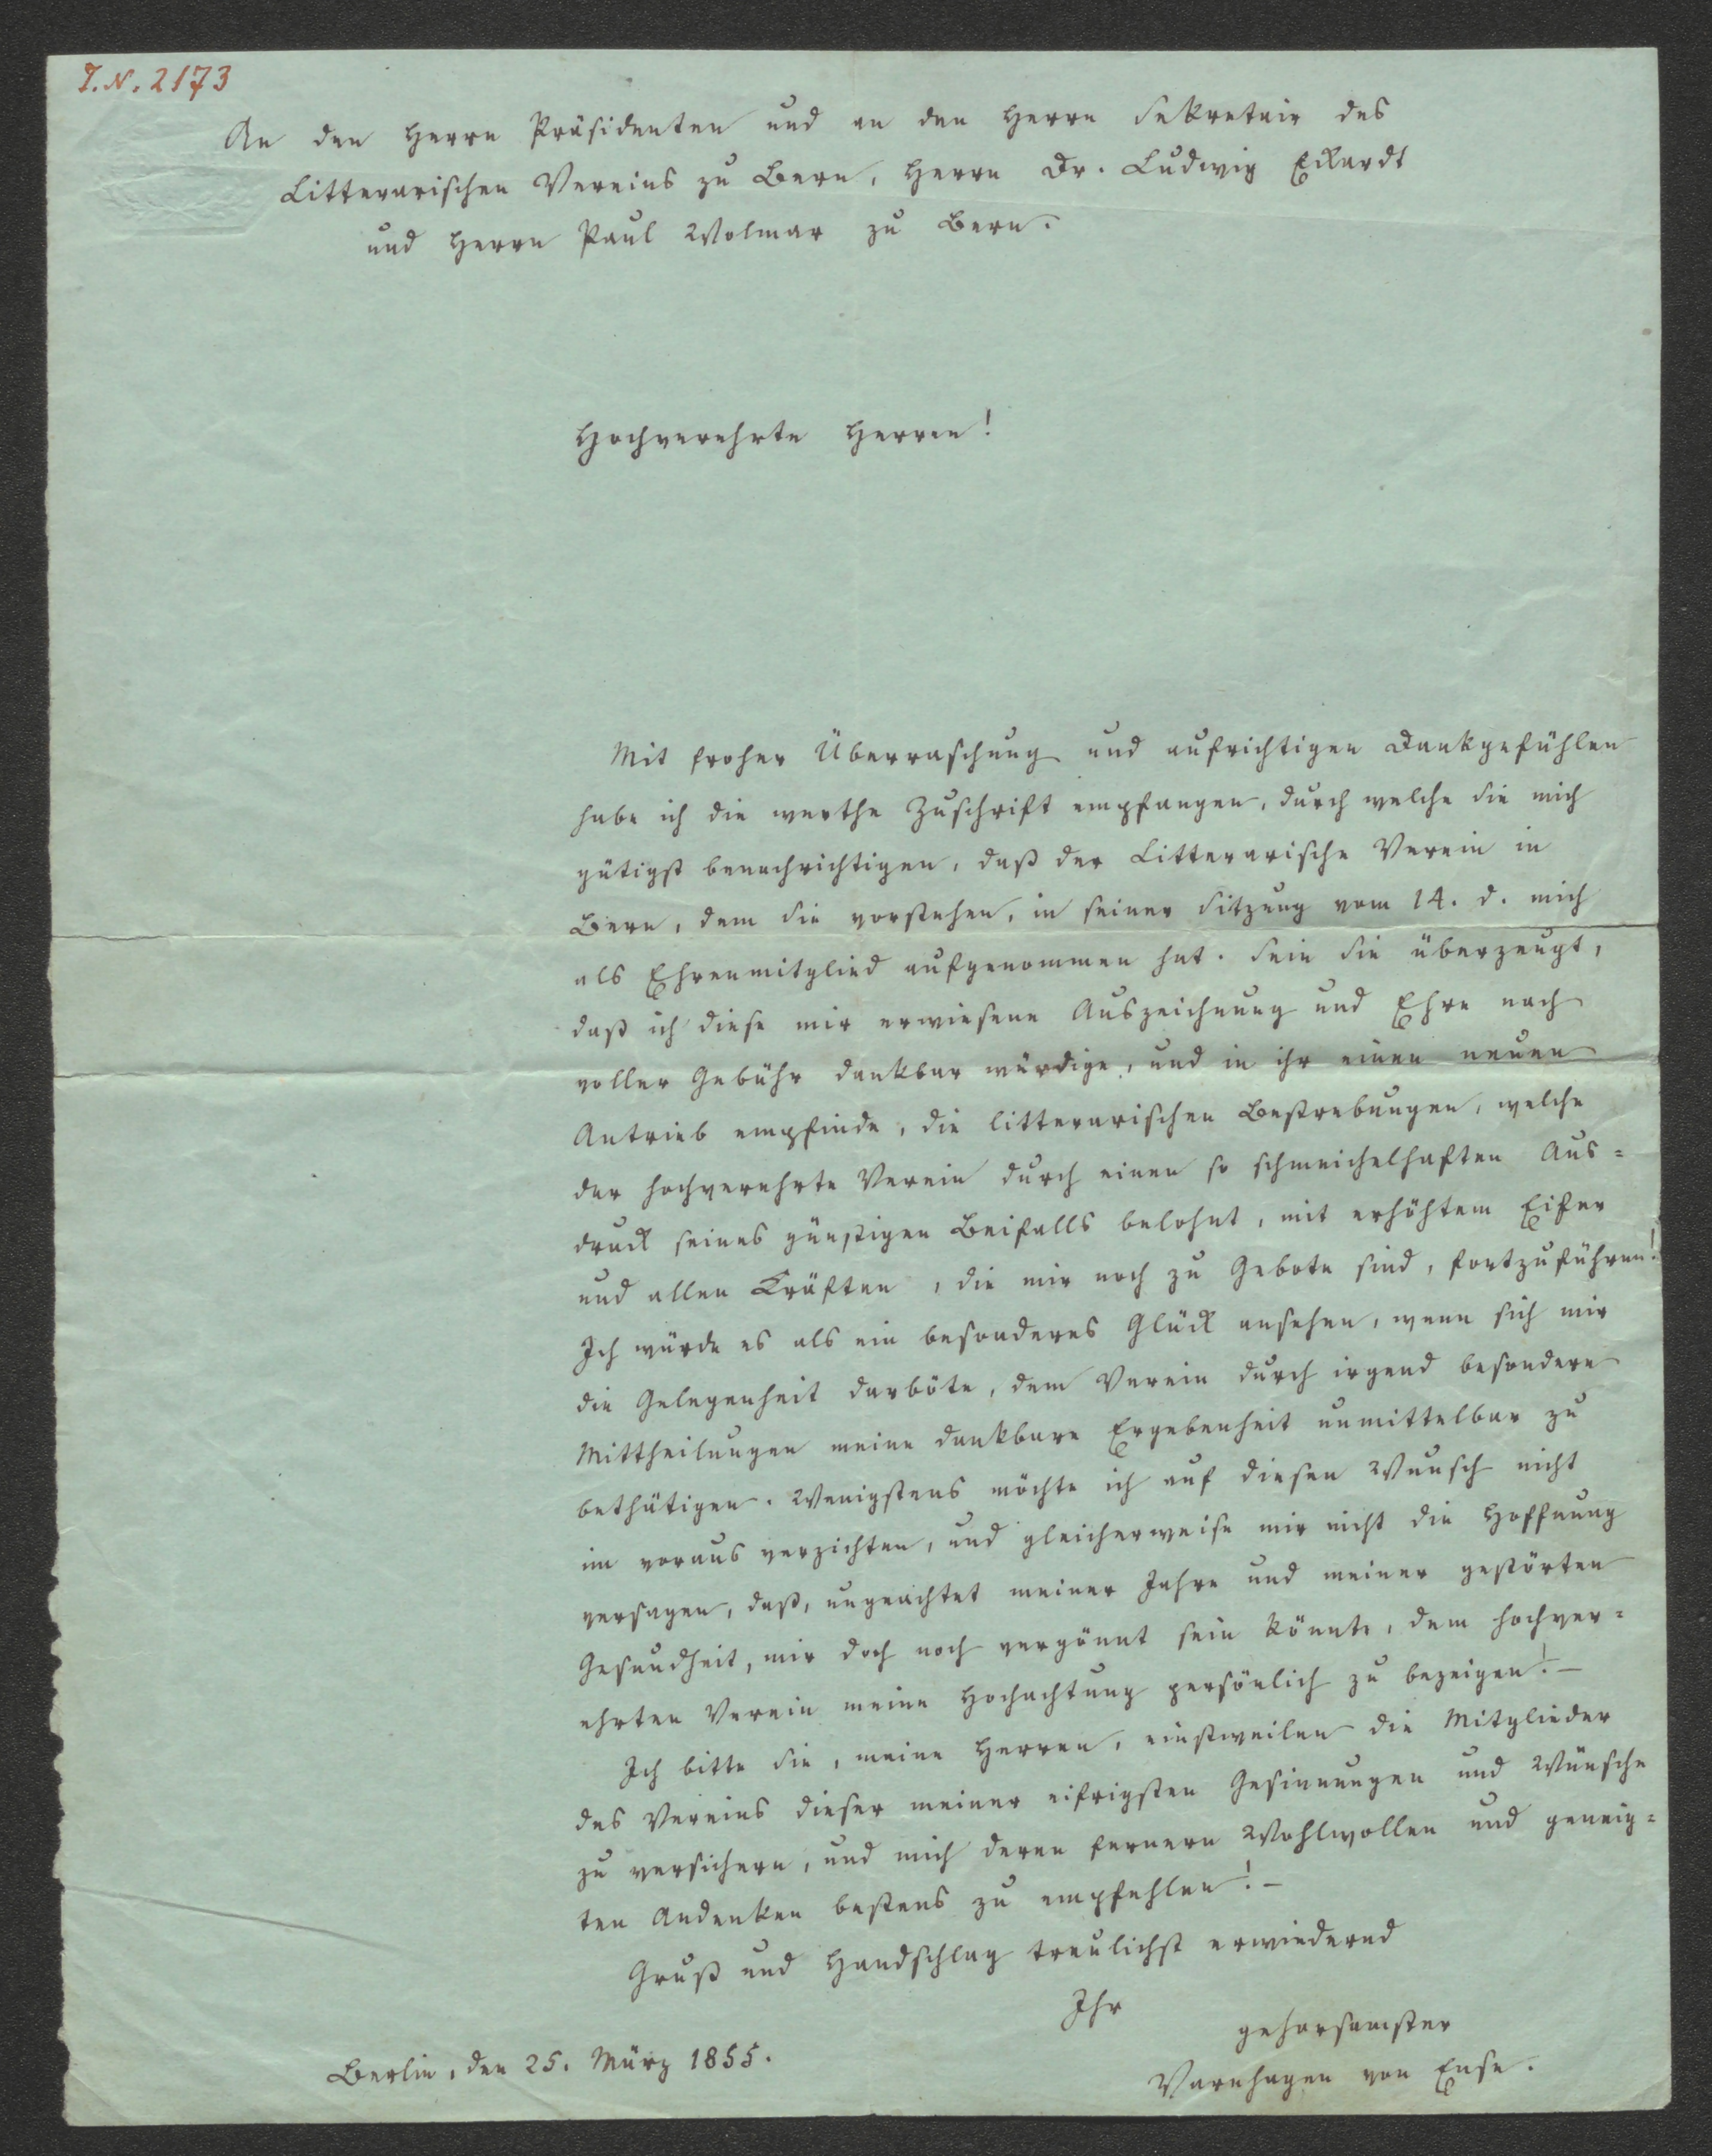 I.N. 2173
An den Herrn Präsidenten und an den Herrn Sekretair des
Litterarischen Vereins zu Bern, Herrn Dr. Ludwig Eckardt
und Herrn Paul Volmar zu Bern.
Hochverehrte Herren!
Mit froher Überraschung und aufrichtigen Dankgefühlen
habe ich die werthe Zuschrift empfangen, durch welche Sie mich
gütigst benachrichtigen, daß der Litterarische Verein in
Bern, dem Sie vorstehen, in seiner Sitzung vom 14. d. mich
als Ehrenmitglied aufgenommen hat. Sein Sie überzeugt,
daß ich diese mir erwiesene Auszeichnung und Ehre nach
voller Gebühr dankbar würdige, und in ihr einen neuen
Antrieb empfinde, die litterarischen Bestrebungen, welche
der hochverehrte Verein durch einen so schmeichelhaften Aus=
druck seines günstigen Beifalls belohnt, mit erhöhtem Eifer
und allen Kräften, die mir noch zu Gebote sind, fortzuführen!
Ich würde es als ein besonderes Glück ansehen, wenn sich mir
die Gelegenheit darböte, dem Verein durch irgend besondere
Mittheilungen meine dankbare Ergebenheit unmittelbar zu
bethätigen. Wenigstens möchte ich auf diesen Wunsch nicht
im voraus verzichten, und gleicherweise mir nicht die Hoffnung
versagen, daß, ungeachtet meiner Jahre und meiner gestörten
Gesundheit, mir doch noch vergönnt sein könnte, dem hochver=
ehrten Verein meine Hochachtung persönlich zu bezeigen! –
Ich bitte Sie, meine Herren, einstweilen die Mitglieder
des Vereins dieser meiner eifrigsten Gesinnungen und Wünsche
zu versichern, und mich deren fernern Wohlwollen und geneig=
ten Andenken bestens zu empfehlen! –
Gruß und Handschlag treulichst erwiedernd
Ihr
gehorsamster
Varnhagen von Ense.
Berlin, den 25. März 1855.